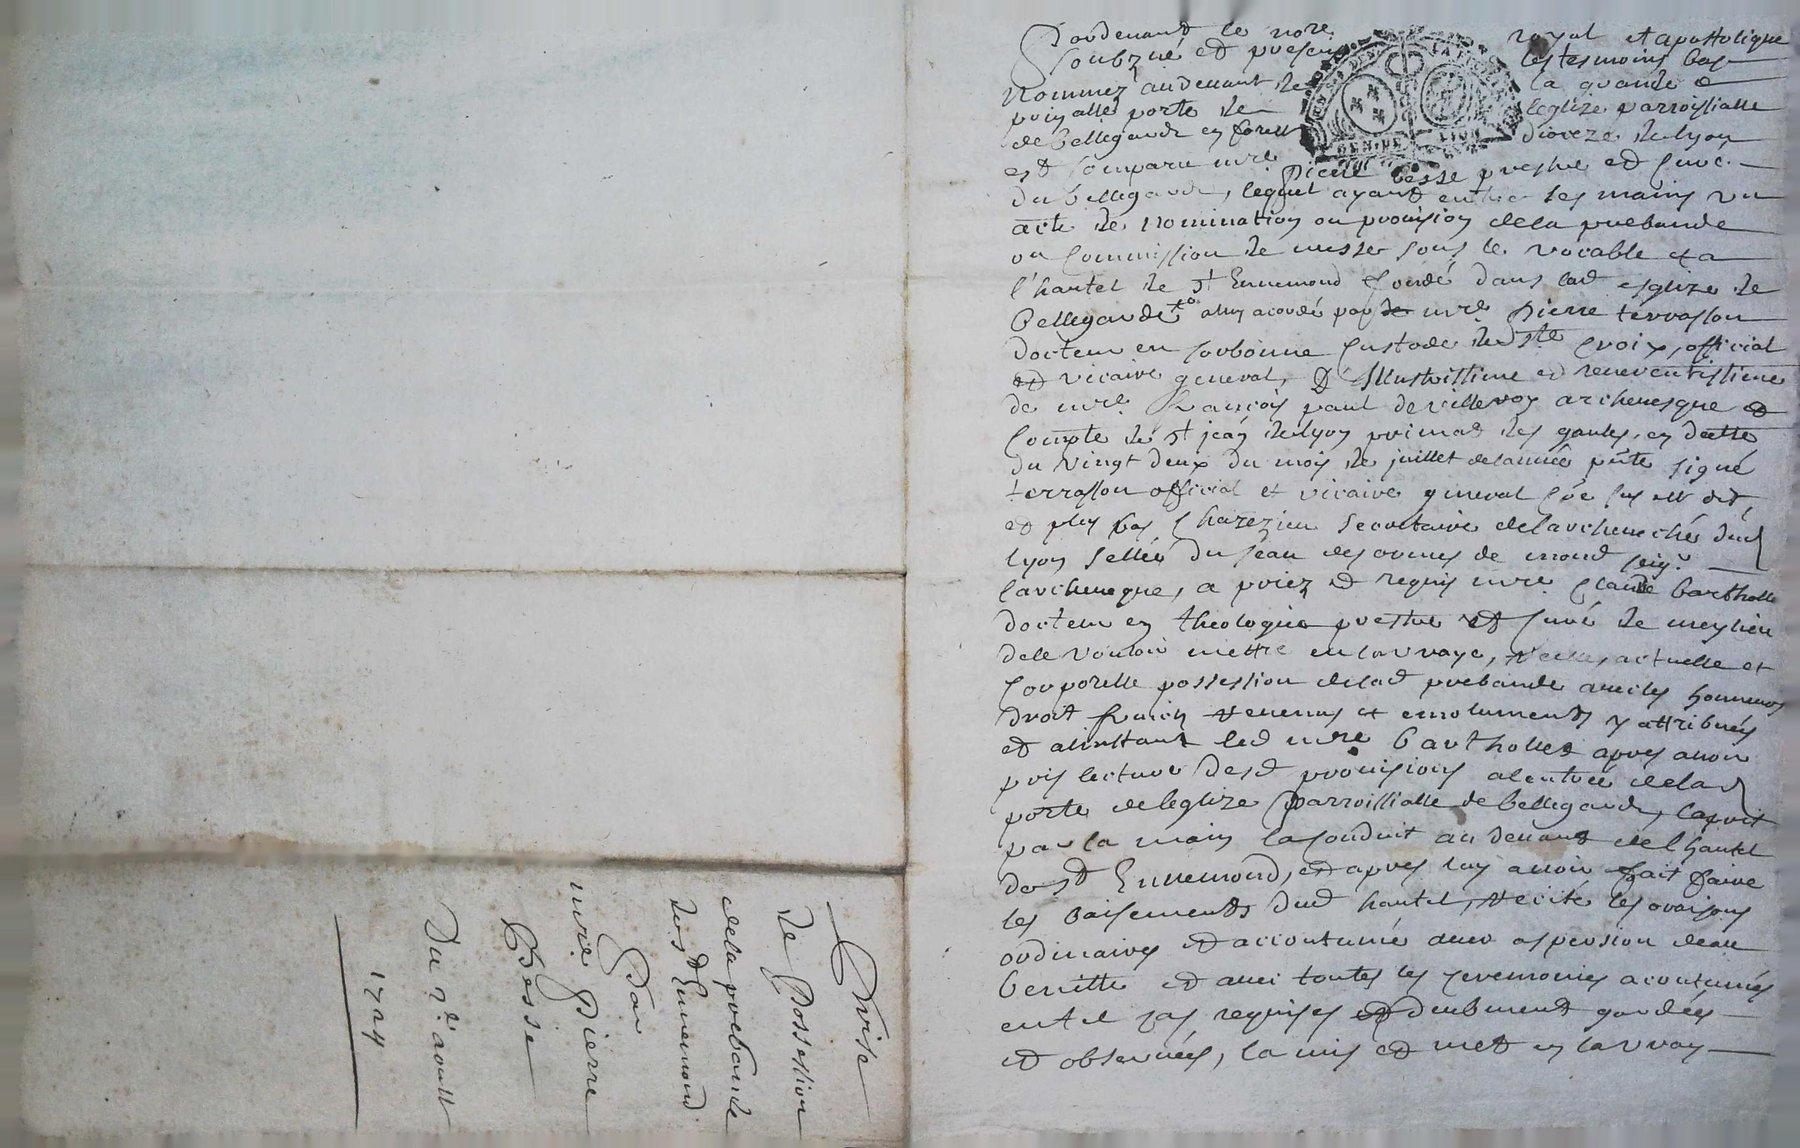 Pardevant le no.re royal et apostolique
soubz.né et presens les tesmoins bas
nommez audevant de la grande et
prinsalle porte de leglize parroissialle
de bellegarde en forest dioceze de lyon
est comparu mre Pierre besse prestre et curé
du bellegarde, lequel ayant entre les mains un
acte de nomination ou provision dela prebande
ou commission de messes sous le vocable et a
l'hautel de st Ennemond fondé dans lad esglize de
Bellegarde a luy acordé par mre Pierre terrasson
docteur en sorbonne custode de Ste croix, official
et vicaire general, d'Illustrissime et reverentissime
de mre François paul de villeroy archevesque et
compte de st jean de lyon primat des gaules, en datte
du vingt deux du mois de juillet delannée pnte signé
terrasson official et vicaire general
et plus bas Chazezieu secretaire delarchevché dud
lyon sellée du seau des armes de mond seigr
larchevegue, a priez et requis mre Claude barthollet
docteur en theologie prestre et curé de meylieu
dele vouloir mettre en la vraye, réelle, actuelle et
corporelle possession delad prebande avec les honneurs
droit fruicts revenus et emoluments y attribués
et alinstant led mre barthollet apres avoir
pris lecture desd provisions alentrée delad
porte deleglize parroissialle de bellegarde, la prit
par la main la conduit au devant delhautel
de st Ennemond, et apres luy avoir fait faire
les baisements dud hautel, recité les oraisons
ordinaires et accoutumé avec aspersion deau
benitte et avec toutes les seremonies acoutumées
en tel cas requises et deubment gardées
et observées, la mis et met en la vray
Prise
de Possession
dela prebande
de st Ennemond
Par
mre Pierre
Besse
Du 2e aoust
1724